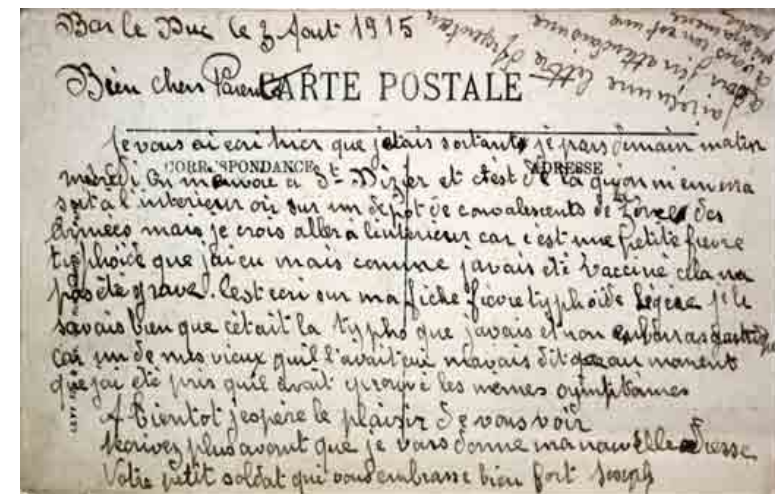 Bar le Duc le 3 Aout 1915
Bien chers Parents
CARTE POSTALE
je vous ai ecri hier que jetais sortant je pars demain matin
CORRESPONDANCE
ADRESSE
mercredi on menvoie a St Dizier et c'est de la qu'on m'enverra
soit a l'interieur ou sur un depot de convalescents de Zone des
Armées mais je crois aller a l'interieur car c'est une petite fievre
typhoide que jai eu mais comme javais été vacciné cela na
pas été grave. Cest ecri sur ma fiche fievre typhoïde légère je le
savais bien que cétait la typho que javais et non embarras gastrique
car un de mes vieux quil l'avait eue mavais dit au moment
que jai été pris quil avait eprouvé les memes symptômes
A bientot jespère le plaisir de vous voir
Necrivez plus avant que je vous donne ma nouvelle adresse
Votre petit soldat qui vous embrasse bien fort Joseph
jai reçu une lettre d'Argentan